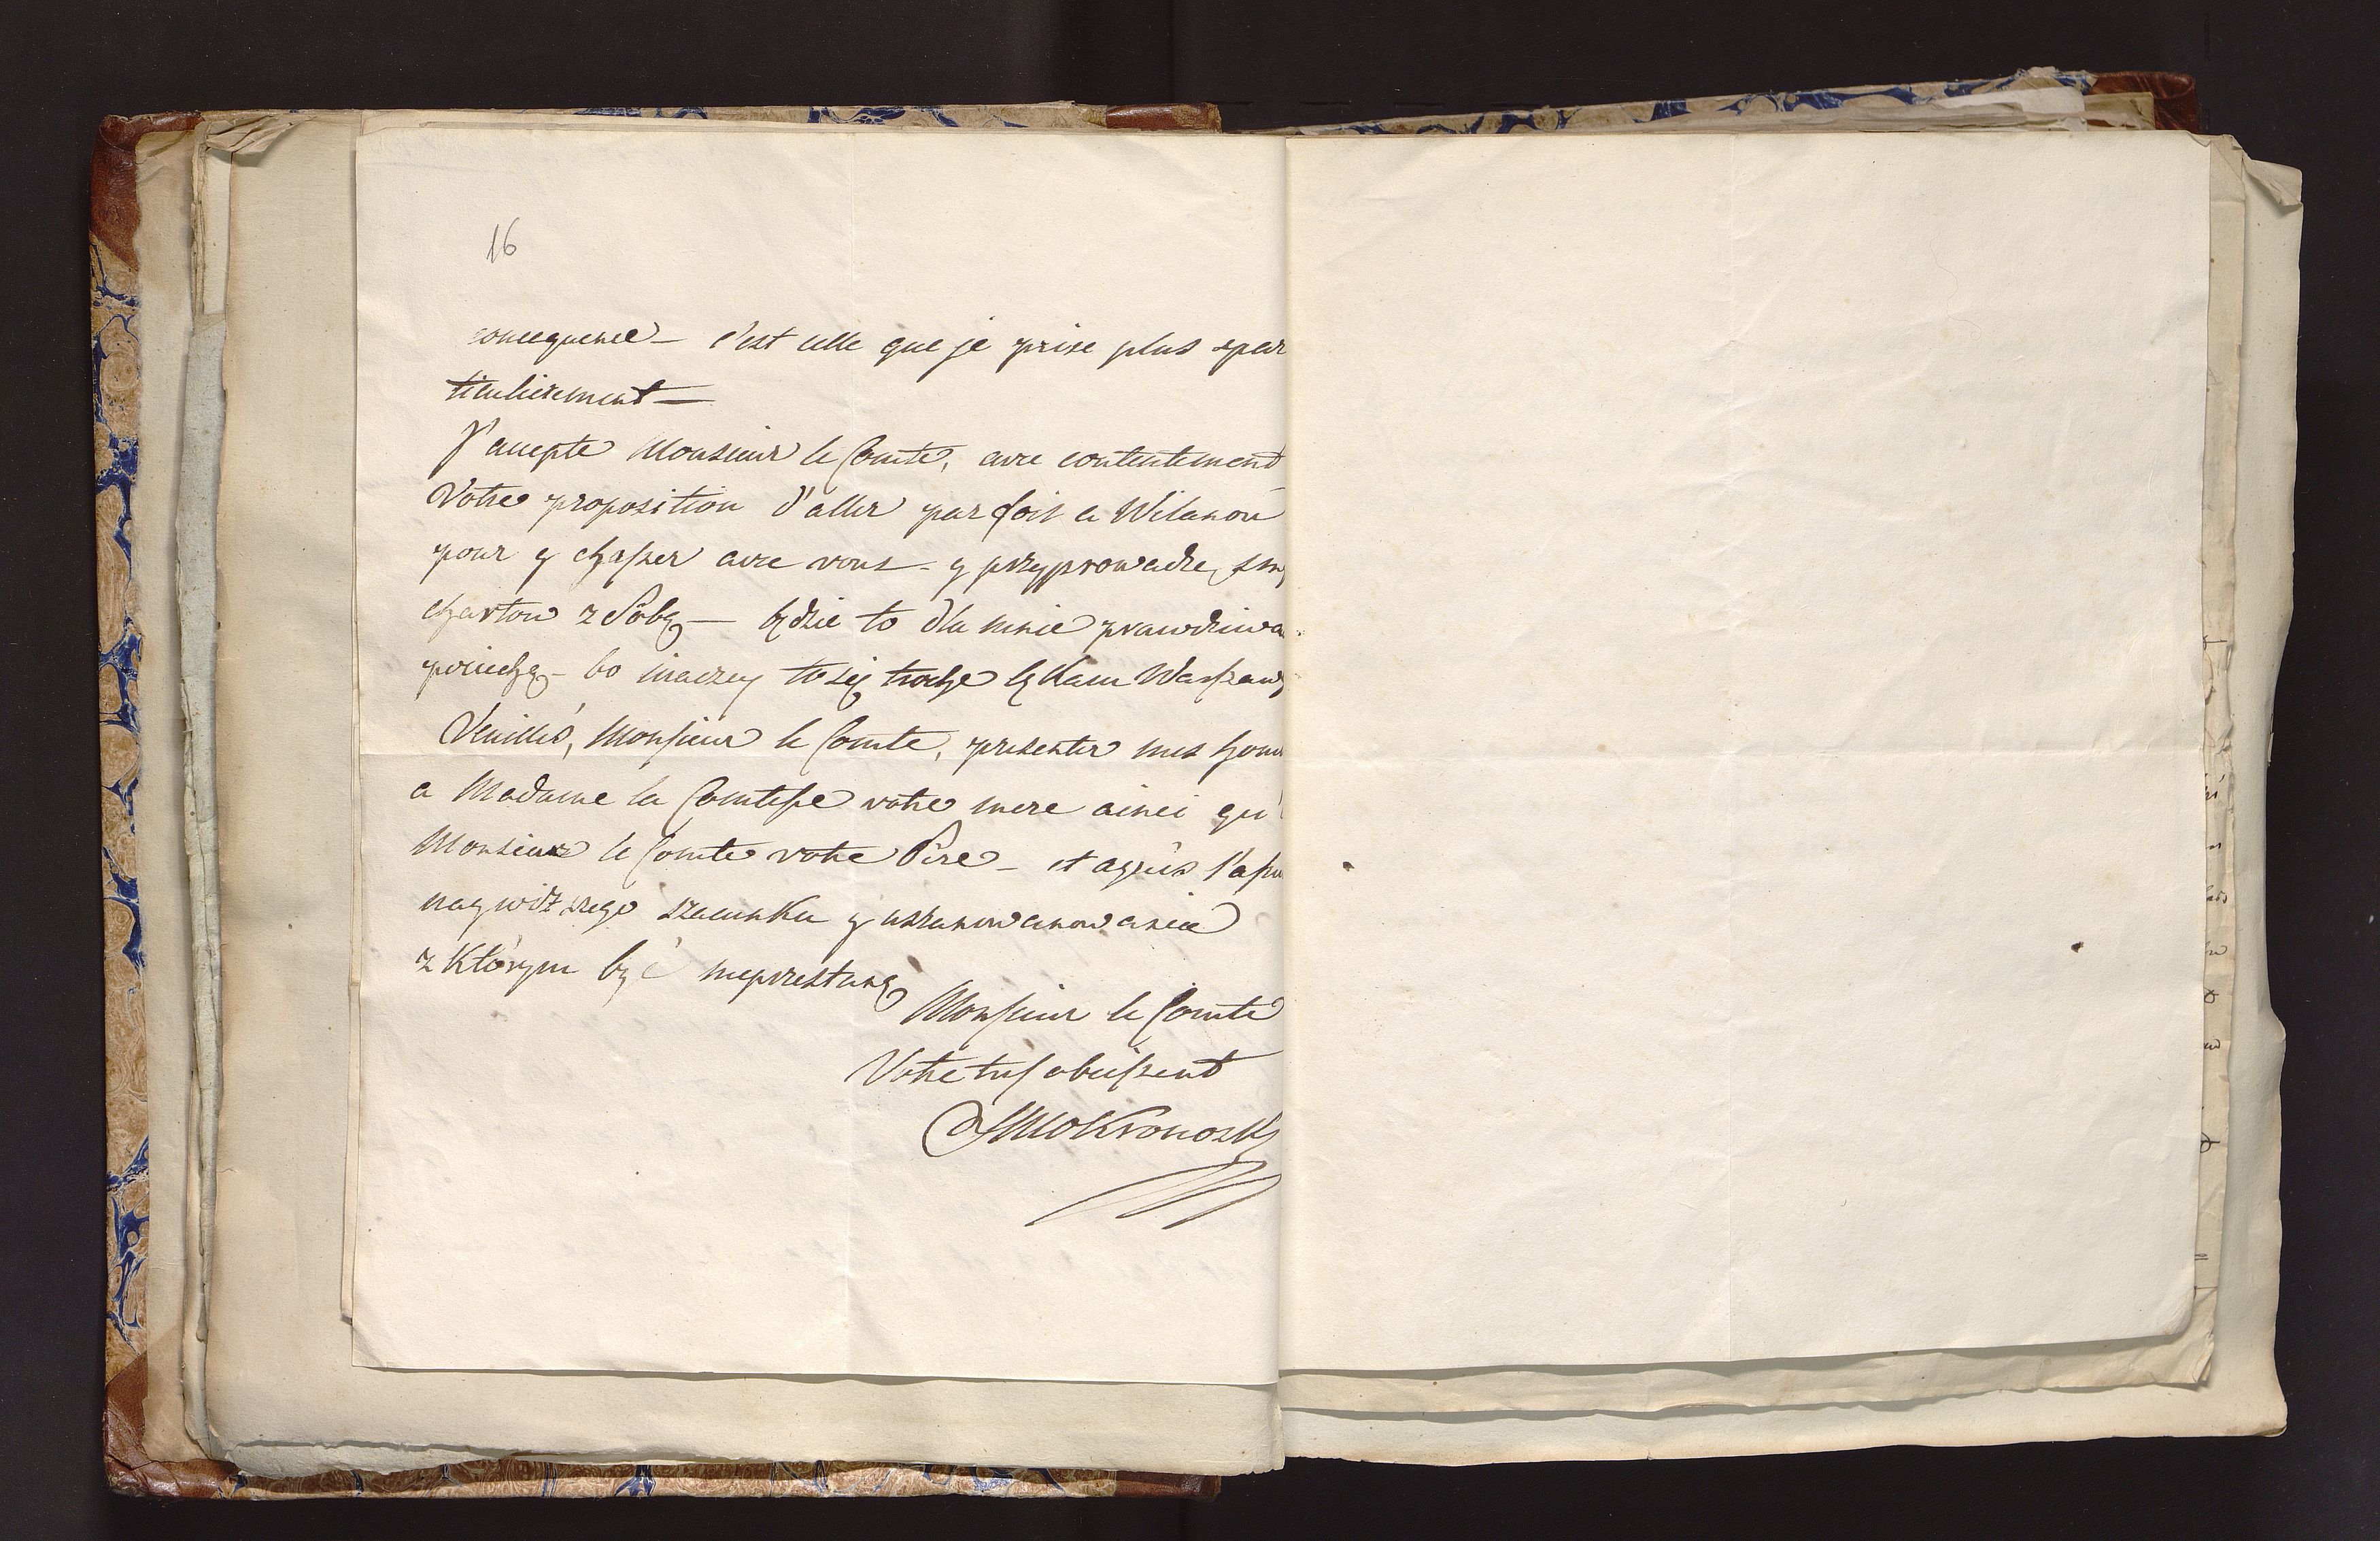 16
consequence — c'est celle que je prise plus par
ticulierement —
J'accepte Monsieur le Comte, avec contentement
Votre proposition d'aller par fois a Wilanow
pour y chasser avec vous - y przyprowadzę
chartow z Sobą — będzie to dla mnie prawdziwa
pociechą - bo inaczey to się trochę lękam Warszawy
Veuillés, Monsieur le Comte, presenter mes hom
a Madame la Comtesse votre mere ainsi qu'
Monsieur le Comte votre Pere - et agréés l'assu
naywiższego szacunku y uszanowanowania
z Którym być nieprzestanę
Monsieur le Comte
Votre tres obeissent
SMokronosky